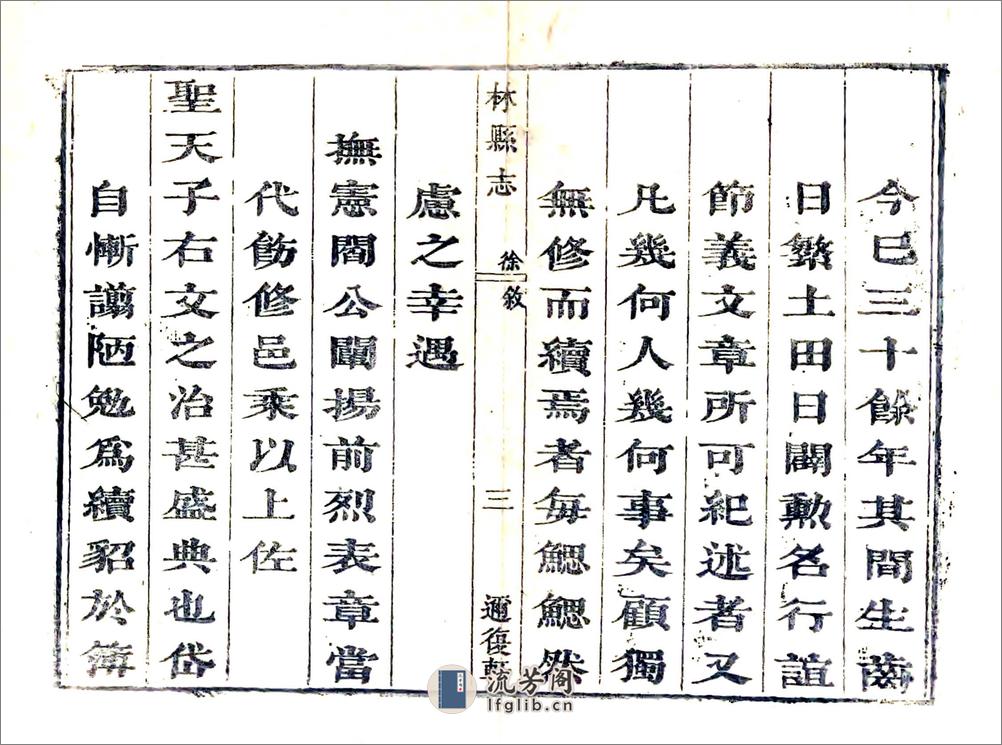 今已三十餘年其間生齒
日繁土田日闢勲名行誼
節義文章所可紀述者又
凡幾何人幾何事矣顧獨
無修而續焉者每鰓鰓然
林縣志 徐敘 三 邇復軒
慮之幸遇
撫憲閻公闡揚前烈表章當
代飭修邑乘以上佐
聖天子右文之治甚盛典也岱
自慚謭陋勉爲續貂於簿
流芳阁
lfglib.cn